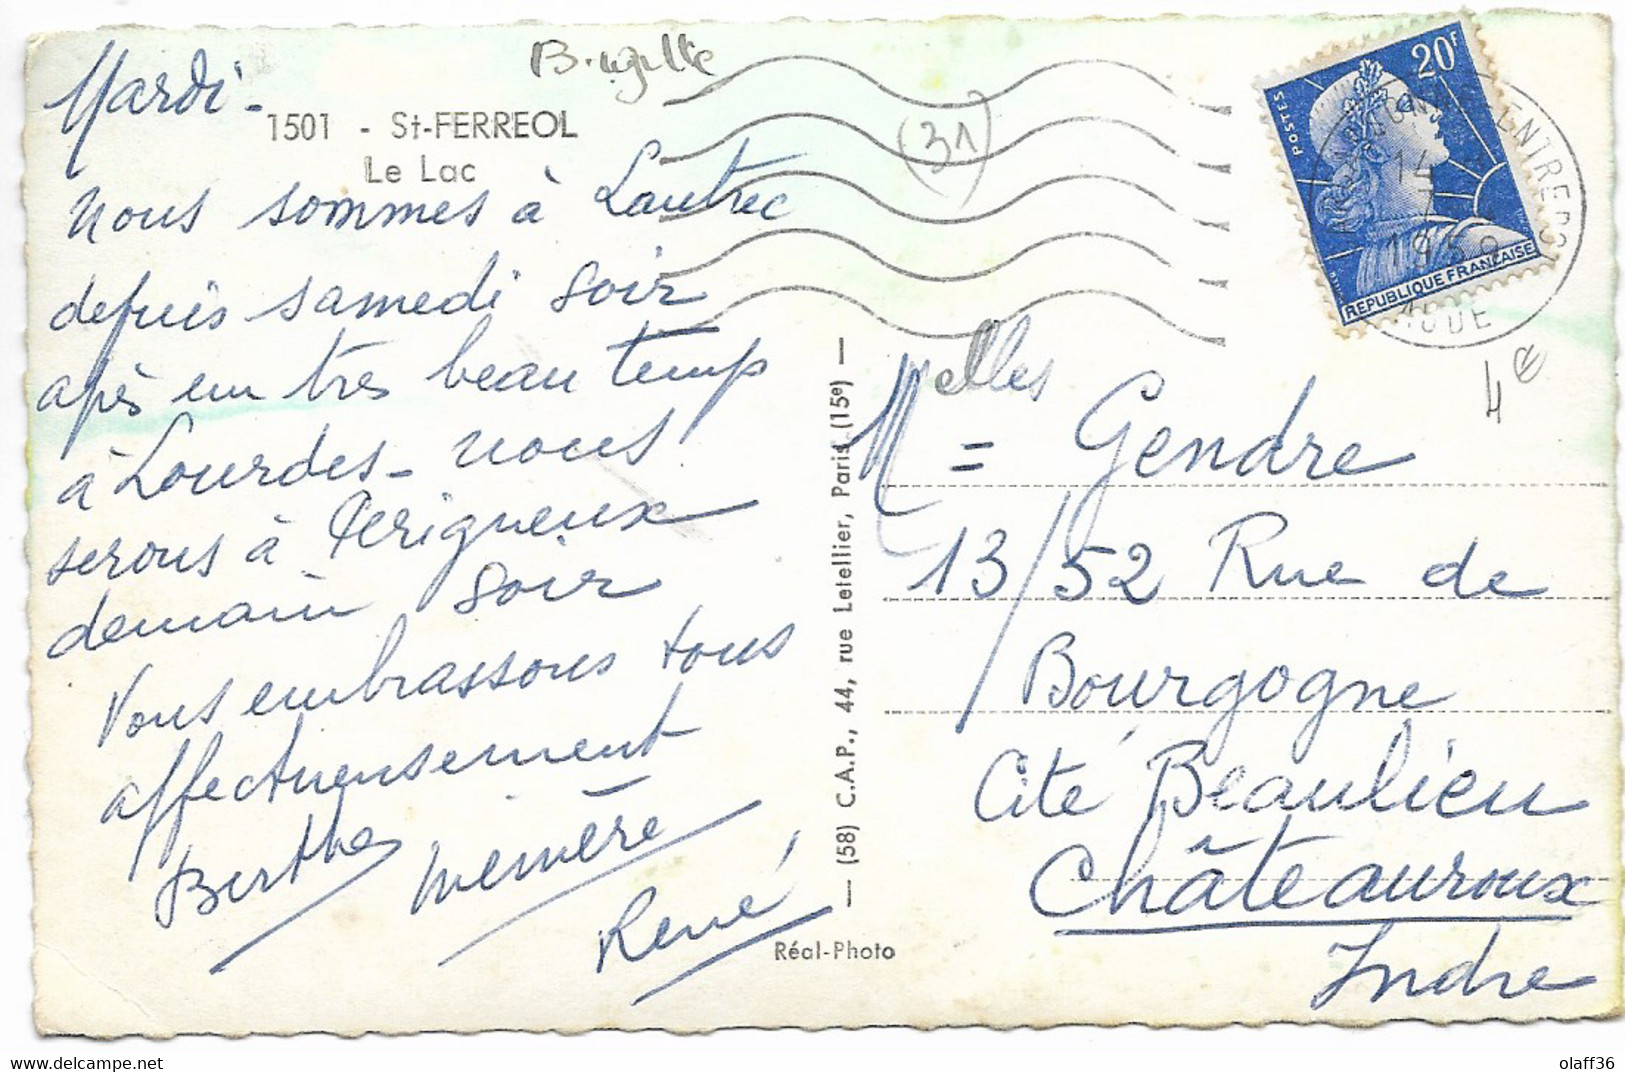 Mardi -
1501 - St-FERREOL
Le Lac
(31)
nous sommes à Lautrec
depuis samedi soir
apès un très beau temps
à Lourdes - nous
serons à Périgueux
demain soir
Vous embrassons tous
affectueusement
Berthe
memère
René
— (58) C.A.P., 44, rue Letellier, Paris (15e) —
Réal-Photo
20F
POSTES
REPUBLIQUE FRANÇAISE
14
1959
AUDE
4 €
Melles = Gendre
13/52 Rue de
Bourgogne
Cité Beaulieu
Châteauroux
Indre
olaff36